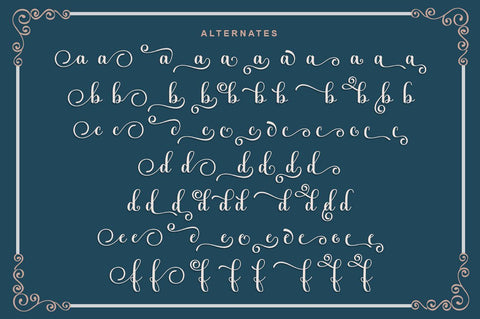 ALTERNATES
a a a a a a a a a a a a
b b b b b b b b b b b
c c c c c c c c c c c c
d d d d d d
d d d d d d d d d d
e e e e e e e e e e e e
f f f f f f f f f